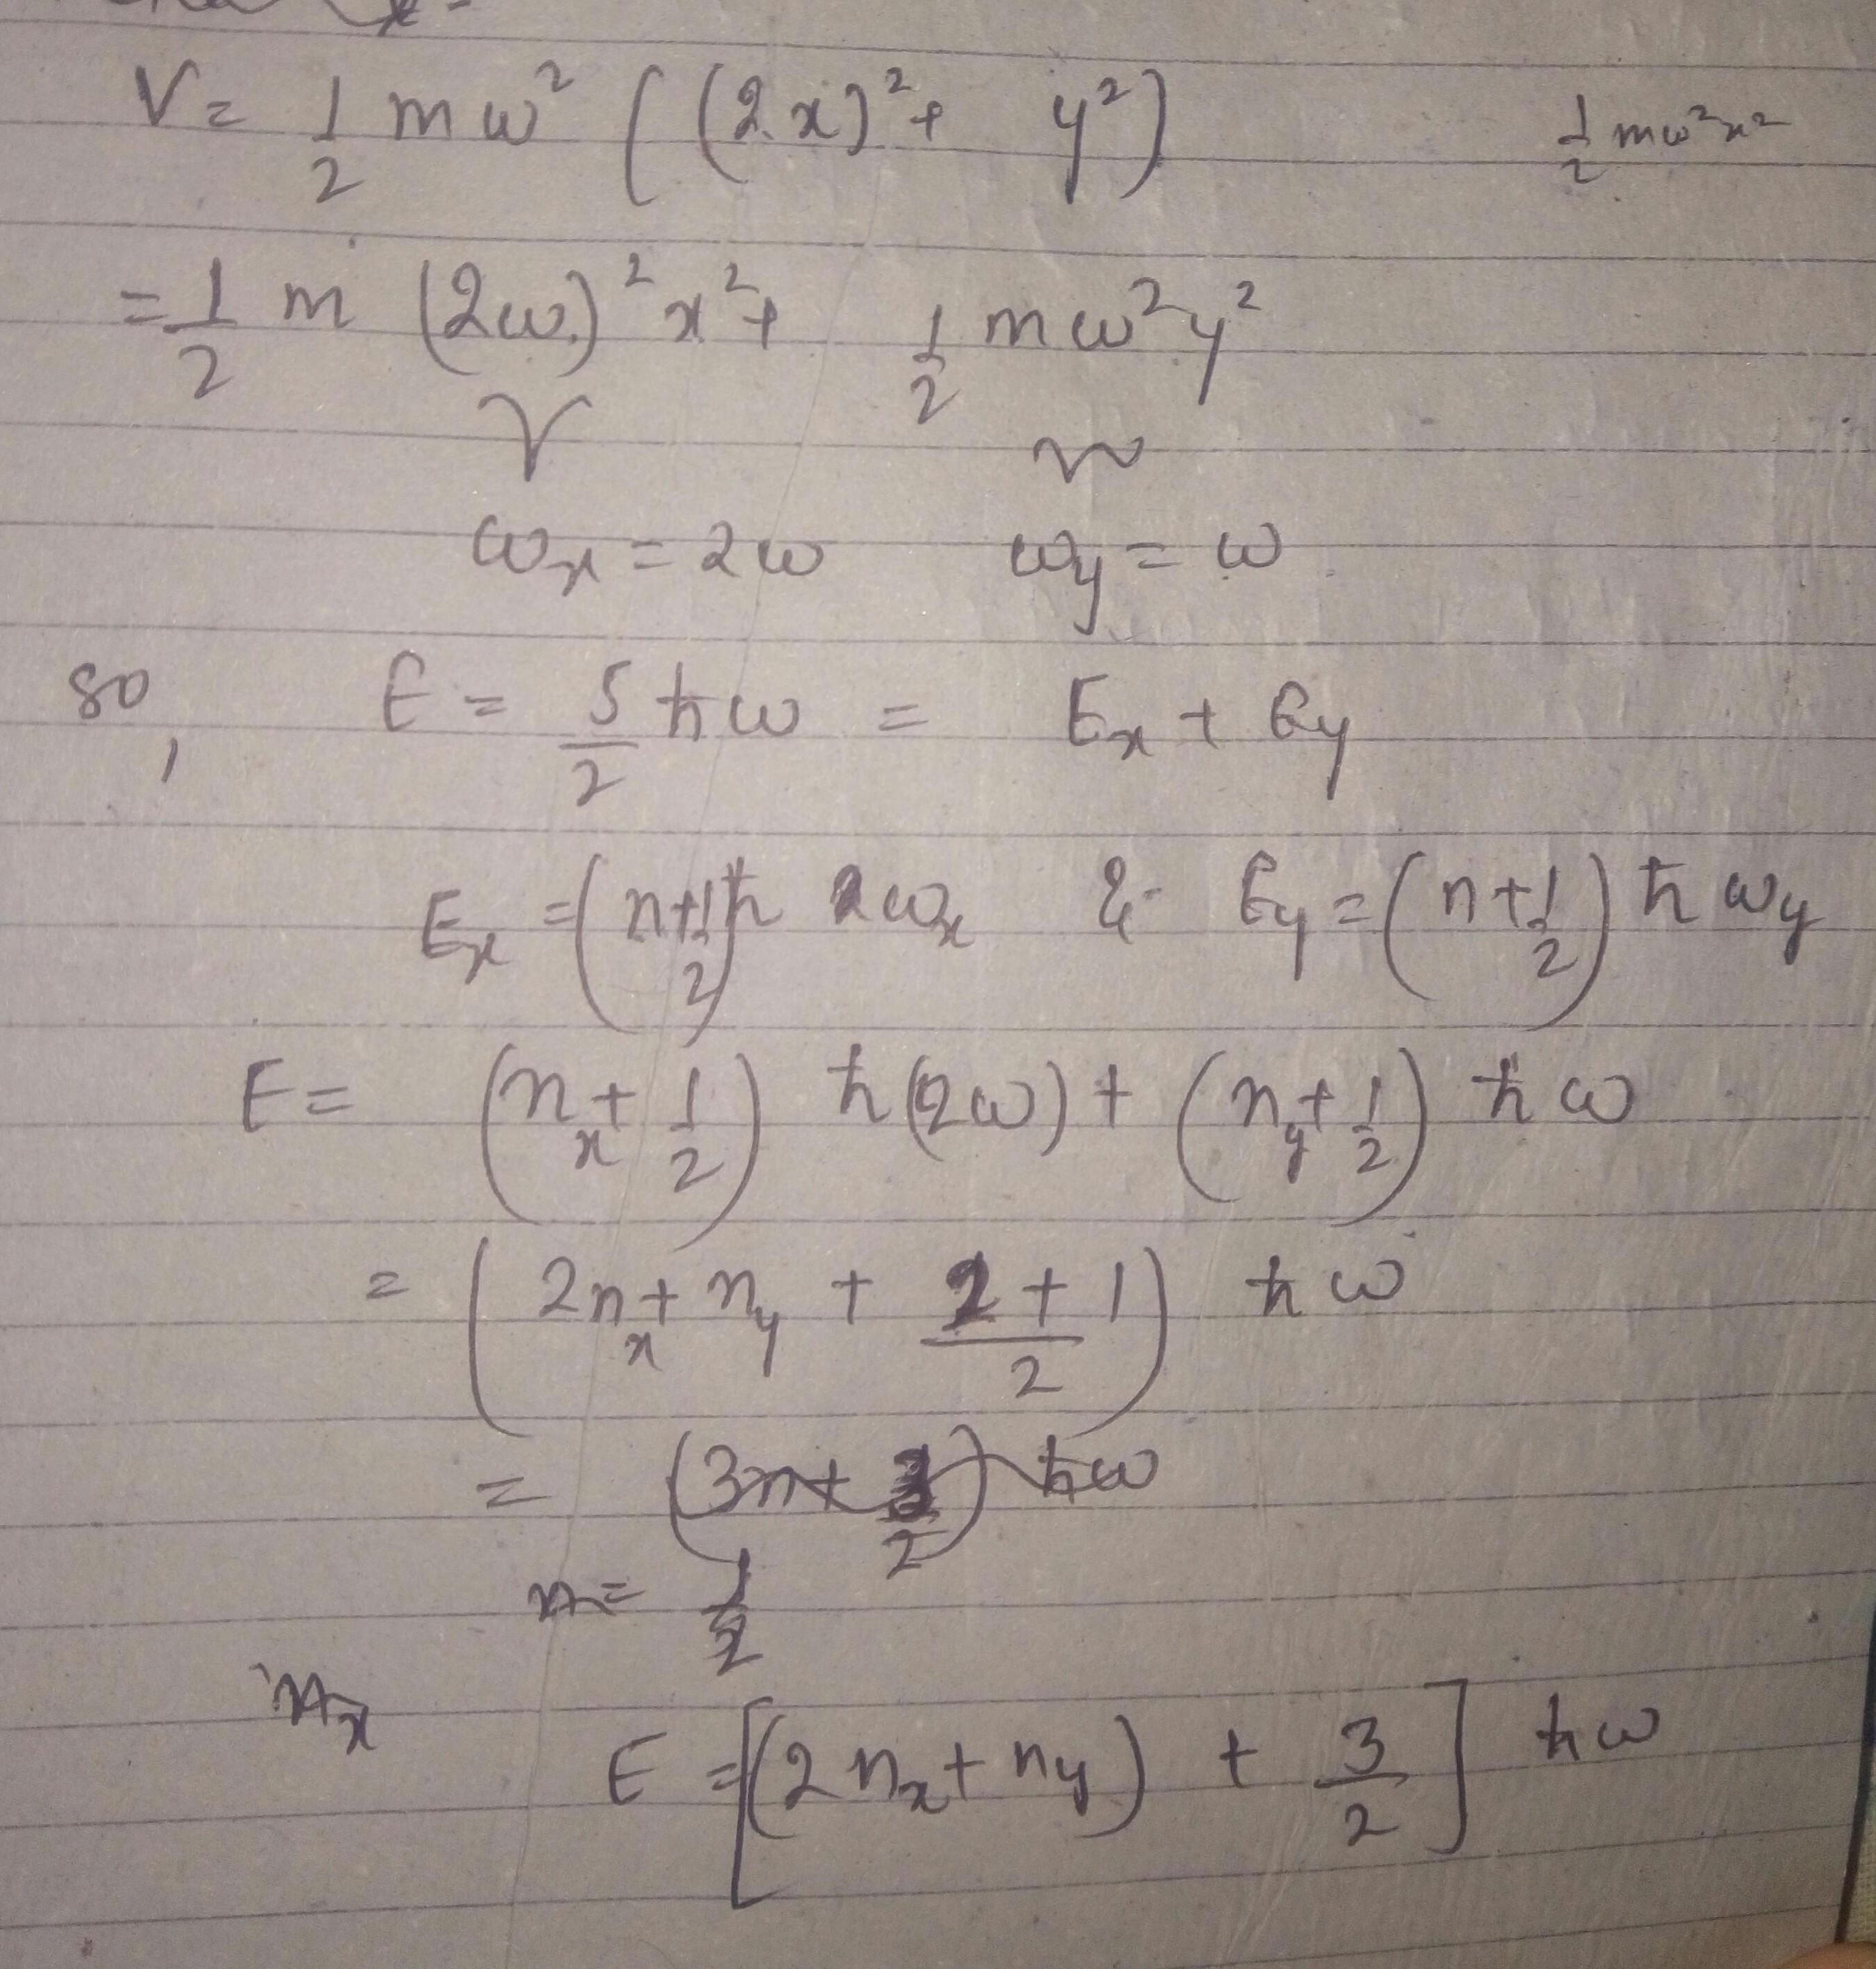 V = 1/2 mω² ((2x)² + y²) 1/2 mω²x²
= 1/2 m (2ω)² x² + 1/2 mω²y²
ωx = 2ω ωy = ω
so, E = 5/2 ħω = Ex + Ey
Ex = (n+1/2)ħ 2ωx & Ey = (n+1/2) ħ ωy
E = (nx + 1/2) ħ(2ω) + (ny + 1/2) ħω
= (2nx + ny + (2+1)/2) ħω
= (3n + 3/2) ħω
n =
nx
E = [(2nx + ny) + 3/2] ħω